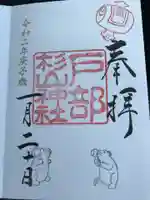 奉拝
戸部
杉山
神社
一月二十日
令和二年庚子歳